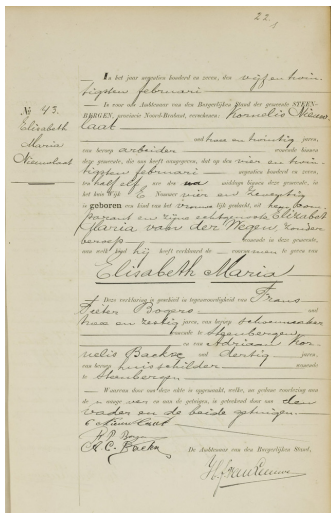 22.
In het jaar negentien honderd en zeven, den vijf en twin-
tigsten februari
is voor ons Ambtenaar van den Burgerlijken Stand der gemeente STEEN-
BERGEN, provincie Noord-Brabant, verschenen: Kornelis Nieuw
laat
oud twee en twintig jaren,
van beroep arbeider wonende binnen
deze gemeente, die ons heeft aangegeven, dat op den vier en twin-
tigsten februari negentien honderd en zeven,
des half elf ure des na middags binnen deze gemeente, in
het huis Wijk E Nummer vier en zeventig
is geboren een kind van het vrouwelijk geslacht, uit hem Com-
parant en zijne echtgenoote Elizabet
Maria van der Wegen, zonder
beroep wonende te deze gemeente,
aan welk kind hij heeft verklaard de voornamen te geven van
Elisabeth Maria
Deze verklaring is geschied in tegenwoordigheid van Frans
Pieter Bogers oud
twee en zestig jaren, van beroep schoenmaker
wonende te Steenbergen
en van Adriaan Kor-
nelis Baekse oud dertig jaren,
van beroep huisschilder wonende
te Steenbergen
Waarvan door ons deze akte is opgemaakt, welke, na gedane voorlezing aan
de en aan de getuigen, is geteekend door ons den
vader en de beide getuigen.
De Ambtenaar van den Burgerlijken Stand,
No. 43.
Elisabeth
Maria
Nieuwlaat